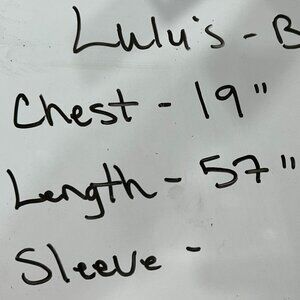 Lulu's - B
Chest - 19"
Length - 57"
Sleeve -